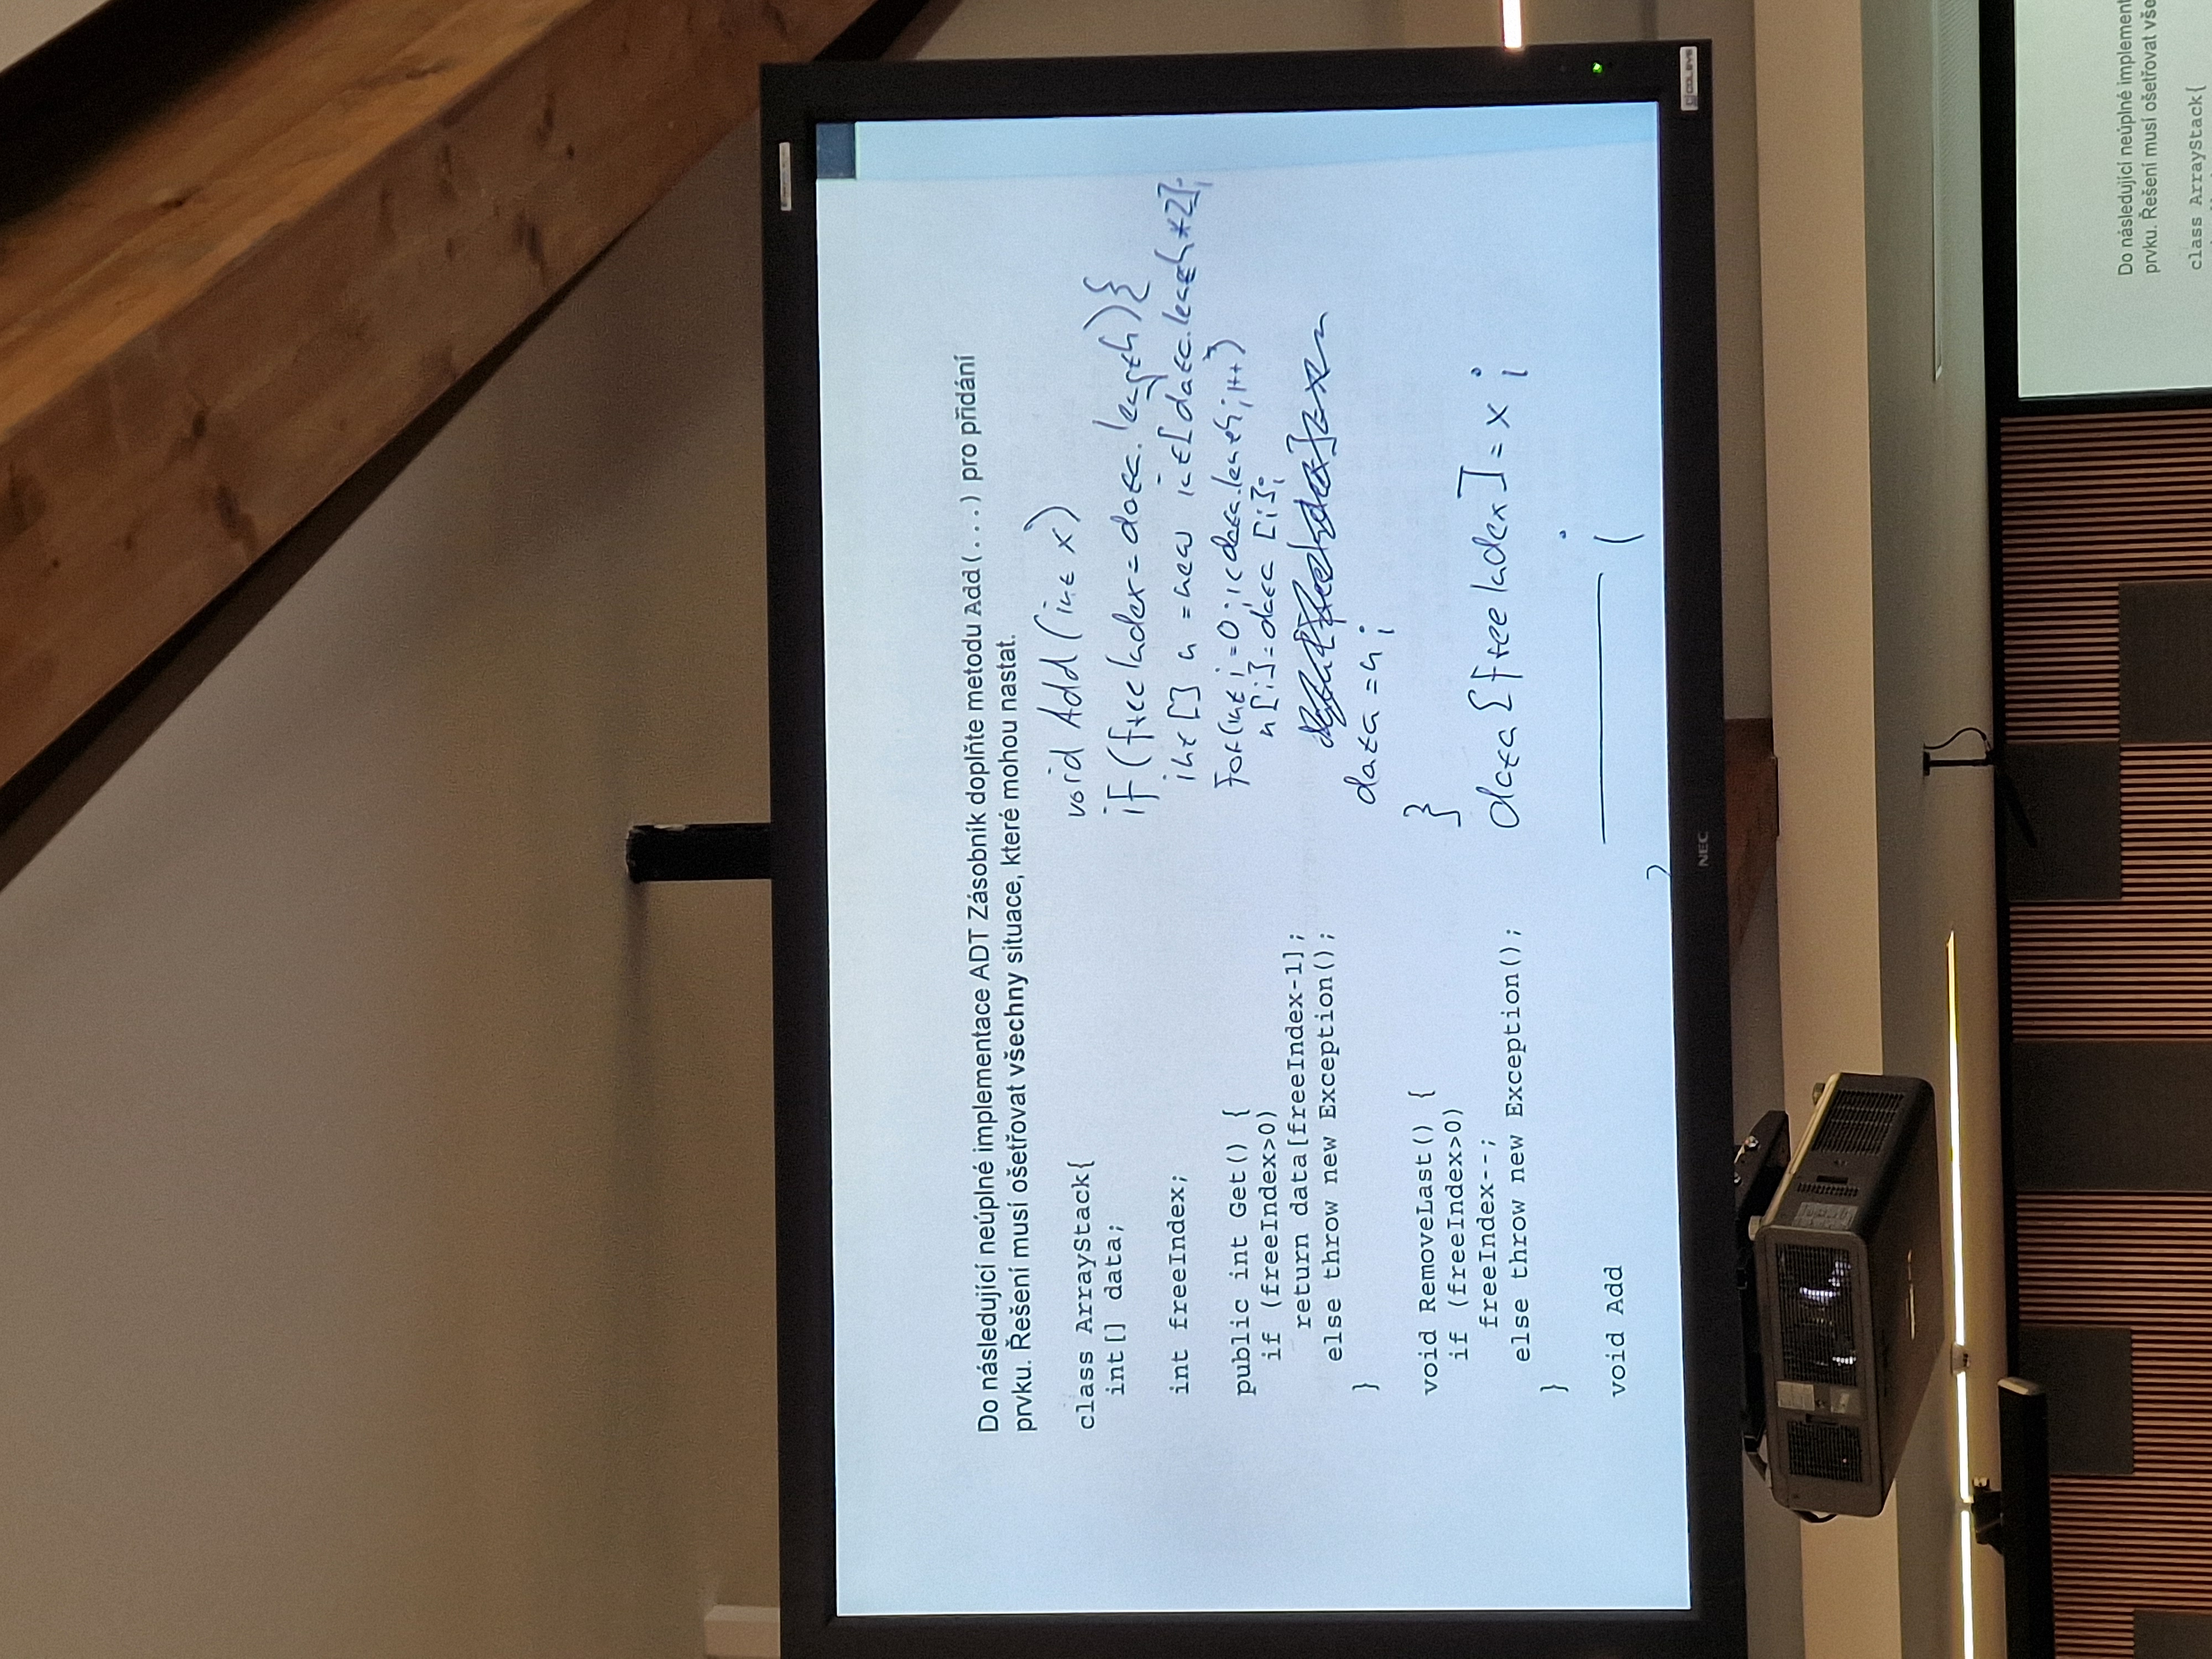 Do následující neúplné implementace ADT Zásobník doplňte metodu Add(...) pro přidání
prvku. Řešení musí ošetřovat všechny situace, které mohou nastat.
class ArrayStack{
int[] data;
int freeIndex;
public int Get() {
if (freeIndex>0)
return data[freeIndex-1];
else throw new Exception();
}
void RemoveLast() {
if (freeIndex>0)
freeIndex--;
else throw new Exception();
}
void Add
void Add (int x)
if (freeIndex=data.length){
int [] n = new int[data.length*2];
for(int i=0;i<data.length;i++)
n[i]=data [i];
data = n;
}
data [freeIndex] = x ;
;
NEC
COLSYS
Do následující neúplné implement
prvku. Řešení musí ošetřovat vše
class ArrayStack{